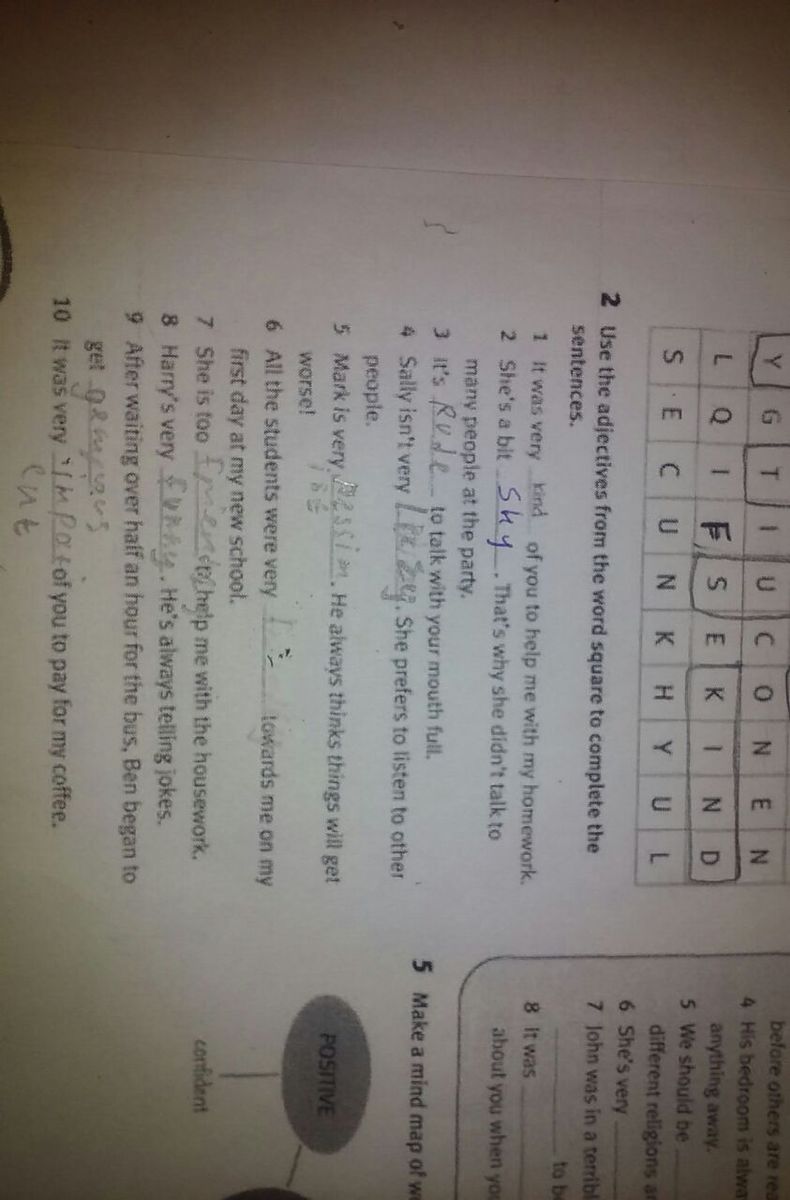 Y G T I U C O N E N
L Q I F S E K I N D
S E C U N K H Y U L
2 Use the adjectives from the word square to complete the
sentences.
1 It was very kind of you to help me with my homework.
2 She's a bit Shy. That's why she didn't talk to
many people at the party.
3 It's Rude to talk with your mouth full.
4 Sally isn't very. She prefers to listen to other
people.
5 Mark is very Pessim. He always thinks things will get
worse!
6 All the students were very towards me on my
first day at my new school.
7 She is too to help me with the housework.
8 Harry's very funny. He's always telling jokes.
9 After waiting over half an hour for the bus, Ben began to
get
10 It was very of you to pay for my coffee.
before others are
4 His bedroom is
anything away.
5 We should be
different religions
6 She's very
7 John was in a
to
8 It was
about you when
5 Make a mind map of
POSITIVE
confident